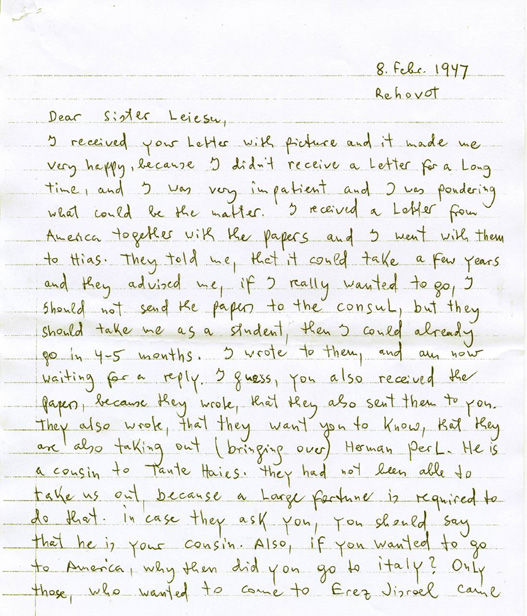 8. Febr. 1947
Rehovot
Dear Sister Leiesu,
I received your Letter with picture and it made me
very happy, because I didn't receive a Letter for a Long
time, and I was very impatient and I was pondering
what could be the matter. I received a Letter from
America together with the papers and I went with them
to Hias. They told me, that it could take a few years
and they advised me, if I really wanted to go, I
should not send the papers to the consul, but they
should take me as a student, then I could already
go in 4-5 months. I wrote to them, and am now
waiting for a reply. I guess, you also received the
papers, because they wrote, that they also sent them to you.
They also wrote, that they want you to know, that they
are also taking out (bringing over) Herman Perl. He is
a cousin to Tante Haies. they had not been able to
take us out, because a Large fortune is required to
do that. in case they ask you, you should say
that he is your cousin. Also, if you wanted to go
to America, why then did you go to italy? Only
those, who wanted to come to Erez Jisroel came